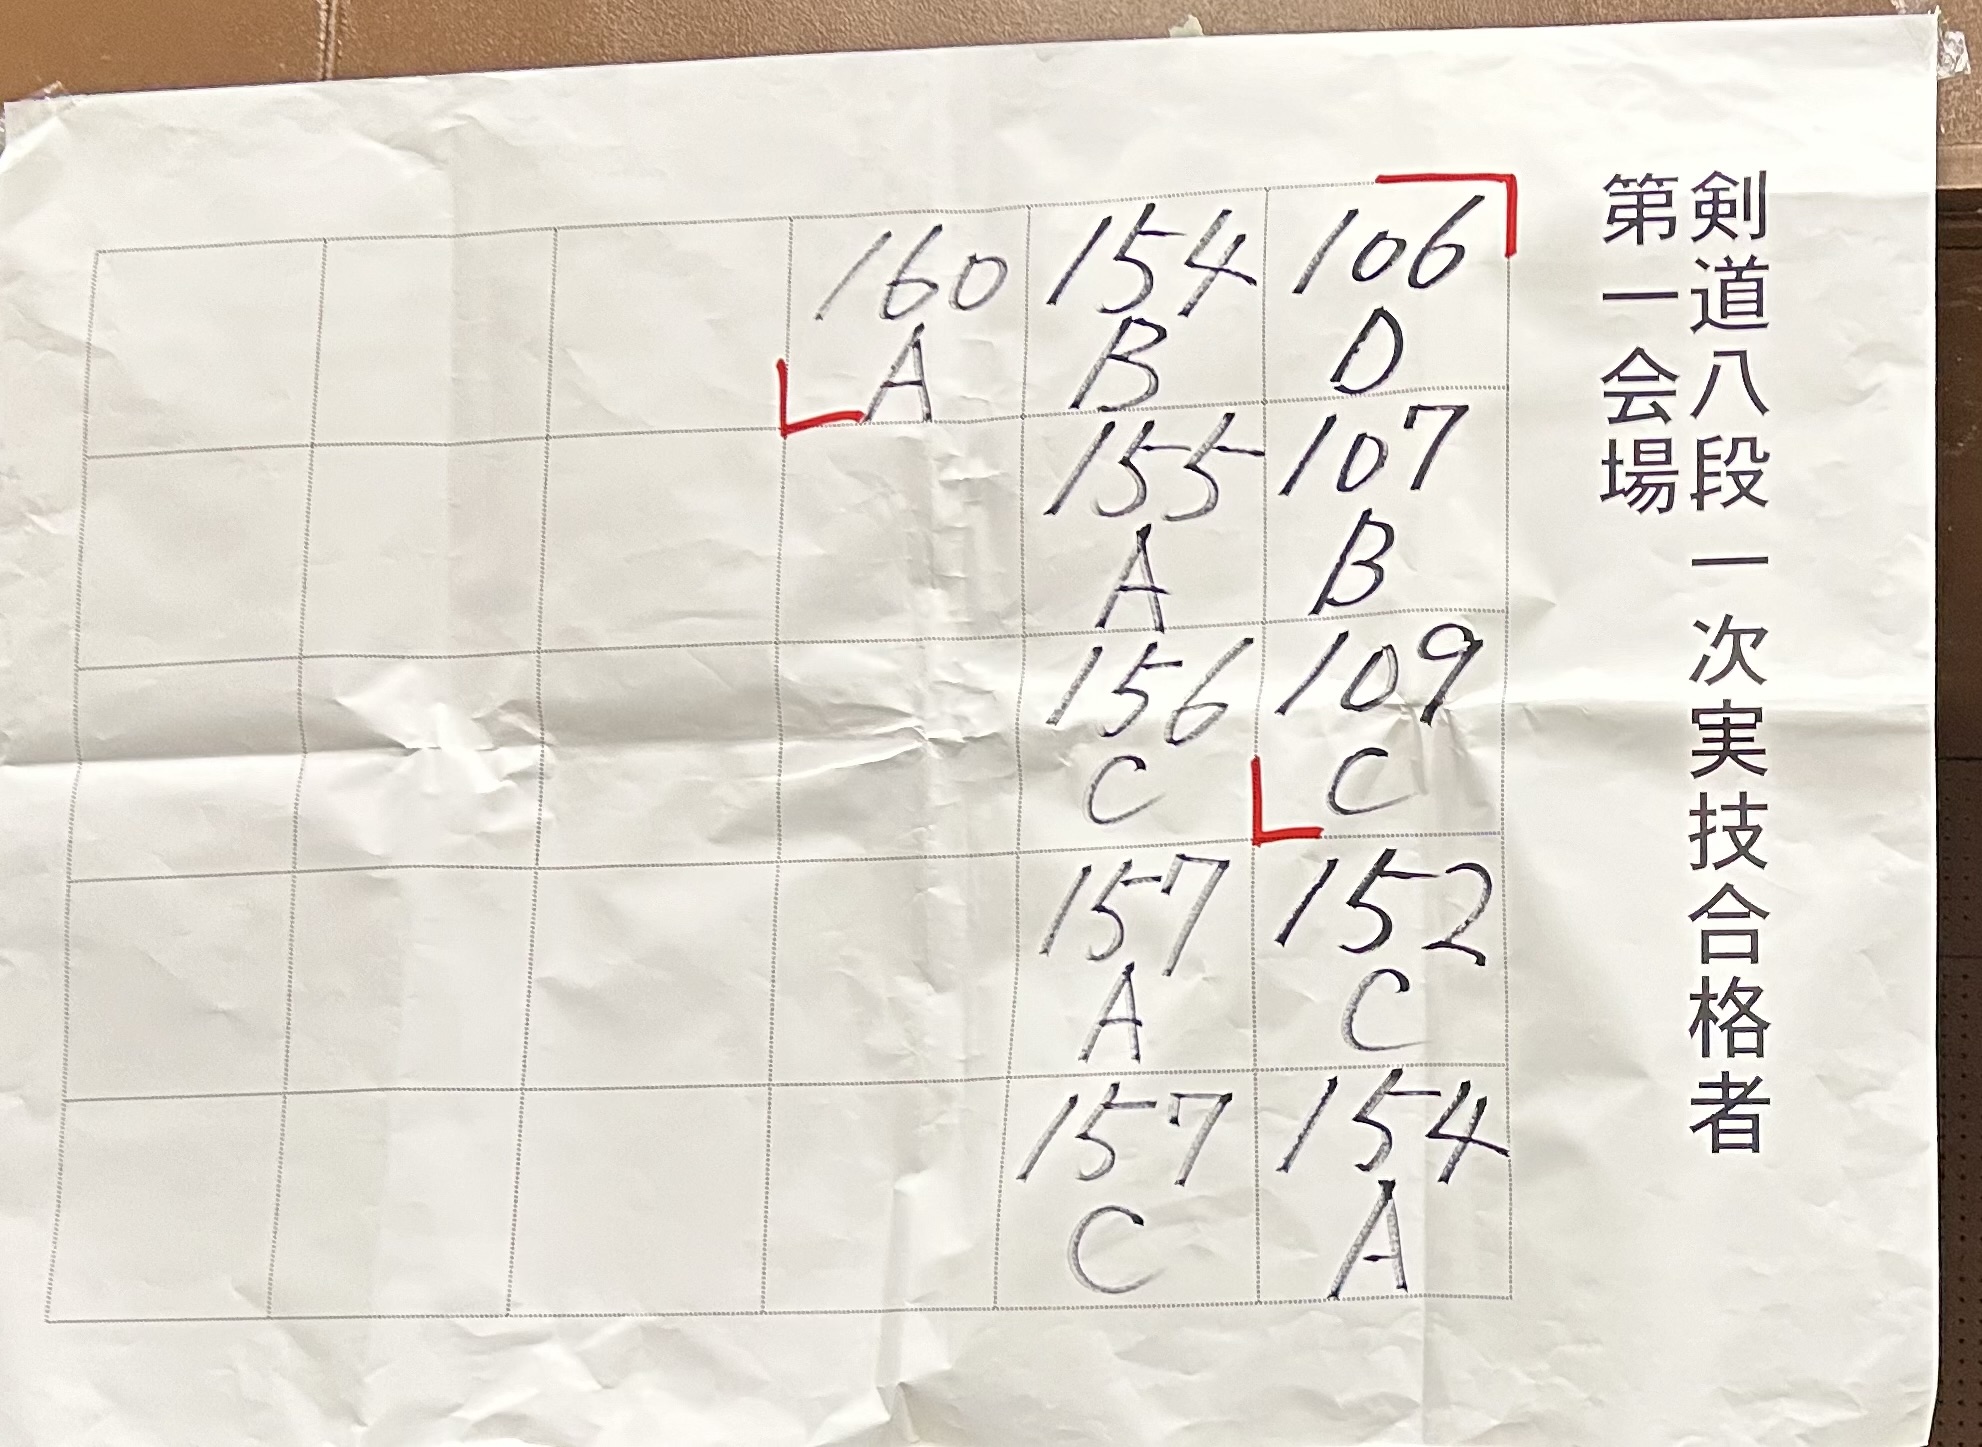 剣道八段一次実技合格者
第一会場
106
D
107
B
109
C
152
C
154
A
154
B
155
A
156
C
157
A
157
C
160
A